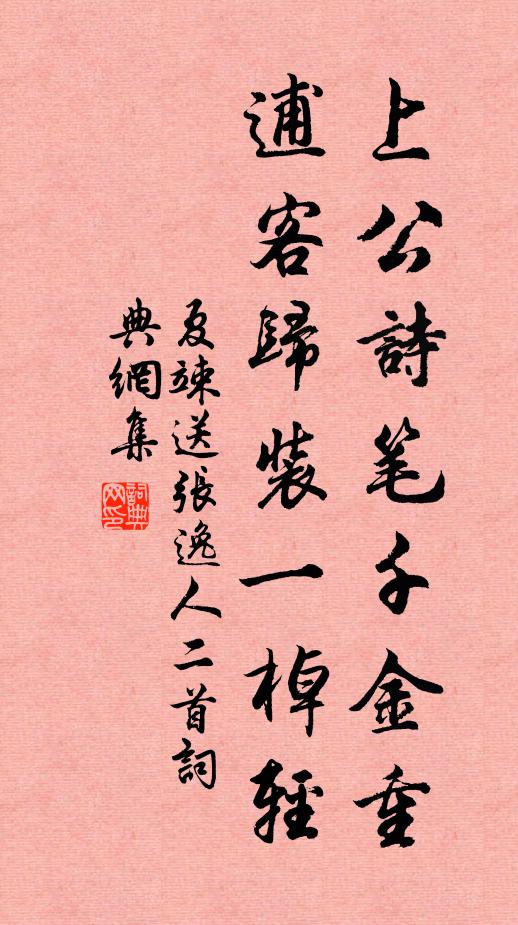 上公詩笔千金重
逋客歸裝一棹輕
夏竦送張逸人二首詞
典網集
詞典
网印